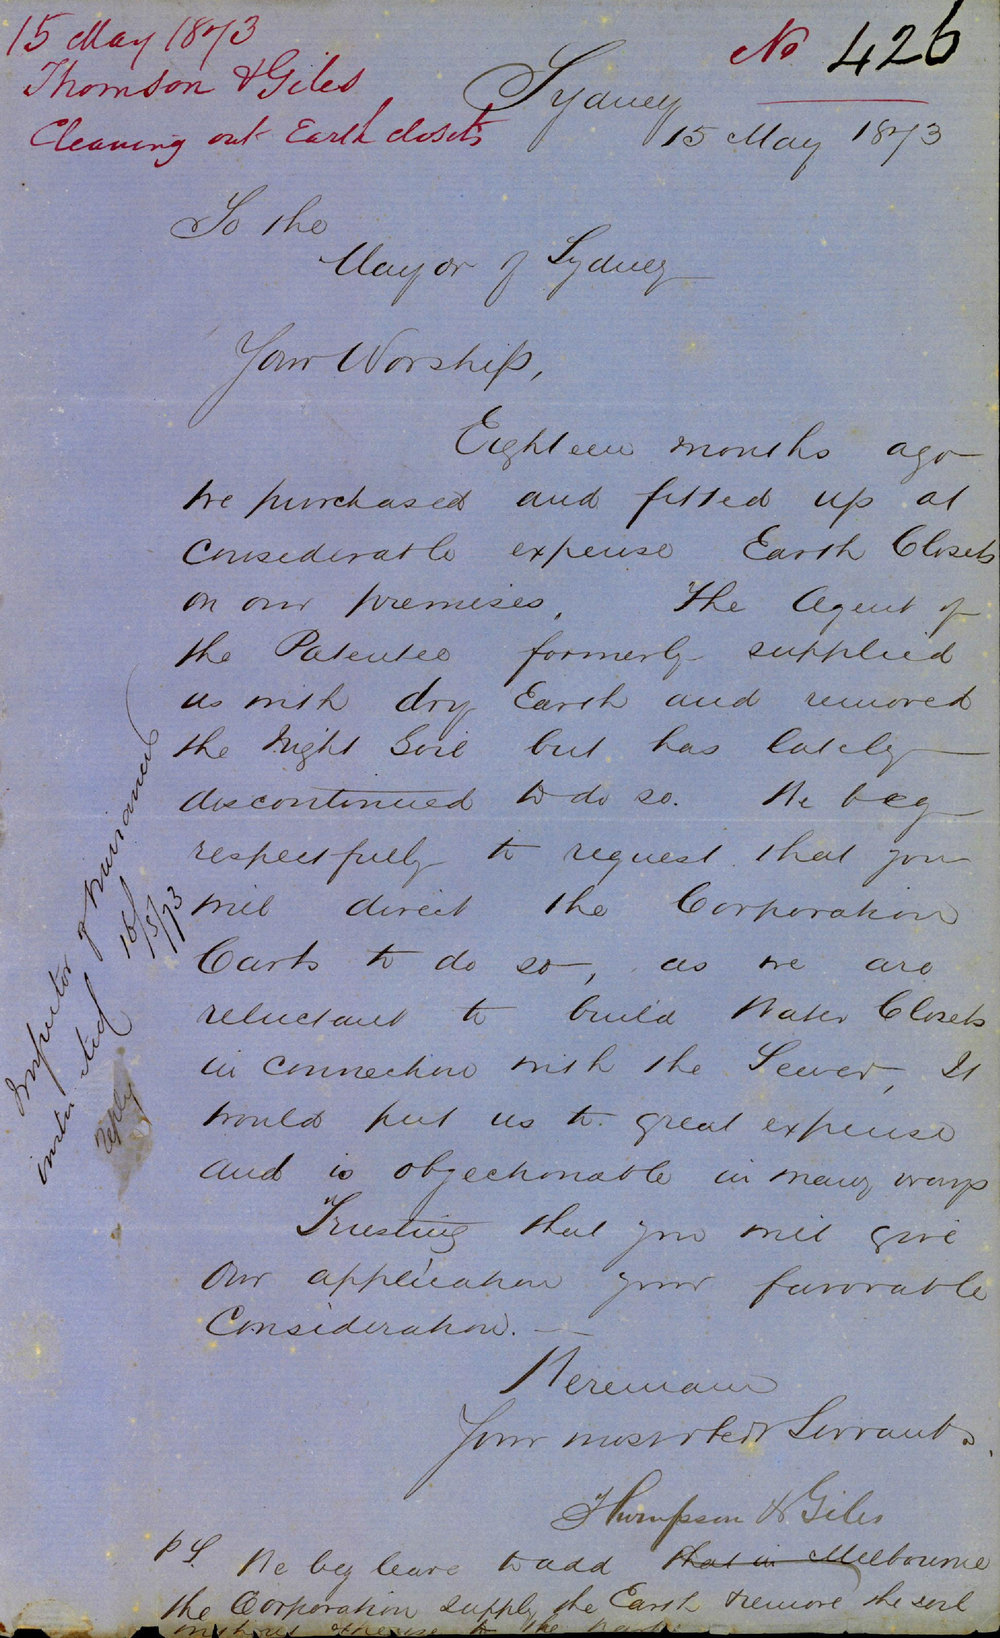 15 May 1873
Thomson & Giles
Cleaning out Earth closets
No 426
Sydney
15 May 1873
To the
Mayor of Sydney
Your Worship,
Eighteen months ago
we purchased and fitted up at
considerable expense Earth Closets
on our premises. The Agent of
the Patentee formerly supplied
us with dry Earth and removed
the Night Soil but has lately
discontinued to do so. We beg
respectfully to request that you
will direct the Corporation
Carts to do so, as we are
reluctant to build Water Closets
in connection with the Sewer, It
would put us to great expense
and is objectionable in many ways
Trusting that you will give
Our application your favorable
Consideration. —
We remain
Your most obedt Servants.
Thompson & Giles
PS. We beg leave to add that in Melbourne
the Corporation supply the Earth & remove the soil
without expense to the
Inspector of Nuisances
instructed 16/5/73
Reply